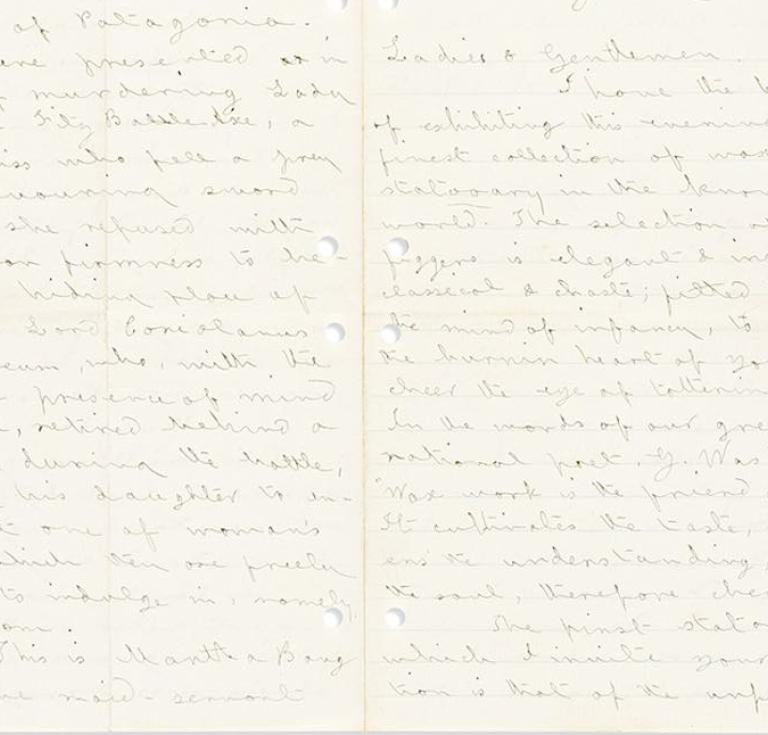 of Patagonia.
presented in
murdering Lady
Fitz Battleaxe, a
iss who fell a prey
vouring sword
she refused with
on firmness to be-
hiding place of
Lord Coriolanus
eum, who, with the
presence of mind
, retired behind a
during the battle,
his daughter to in-
t one of woman's
which they are freely
to indulge in, namely,
om.
This is Martha Bang
maid-servant
Ladies & Gentlemen.
I have the
of exhibiting this evening
finest collection of wax
statooary in the know
world. The selection o
figgers is elegant & in
classical & chaste; fitted
the mind of infancy, to
the burnin heart of yo
cheer the eye of totterin
In the words of our gre
national poet, G. Was
"Wax work is the friend
It cultivates the taste,
ens the understanding,
the soul, therefore che
The first stato
which I invite your
tion is that of the unf